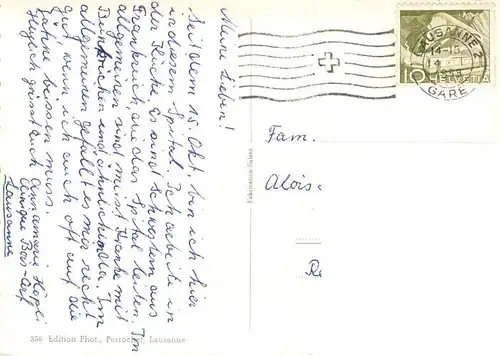 Meine Lieben!
Seit dem 15. Okt. bin ich hier
in diesem Spital. Ich arbeite in
der Küche. Es sind Schwestern aus
Frankreich, die das Spital leiten. Im
allgemeinen sind meist Kranke mit
und ähnlichem da. Im
allgemeinen gefällt es mir recht
gut, wenn ich auch oft auf die
Zähne beissen muss.
Herzlich grüsst euch Annamarie Högli
Clinique Bois-Cerf
Lausanne
Fam.
Alois
Re
LAUSANNE 2
14-15
14
GARE
10
HELVETIA
Fabrication Suisse
356 Edition Phot., Perrochet, Lausanne